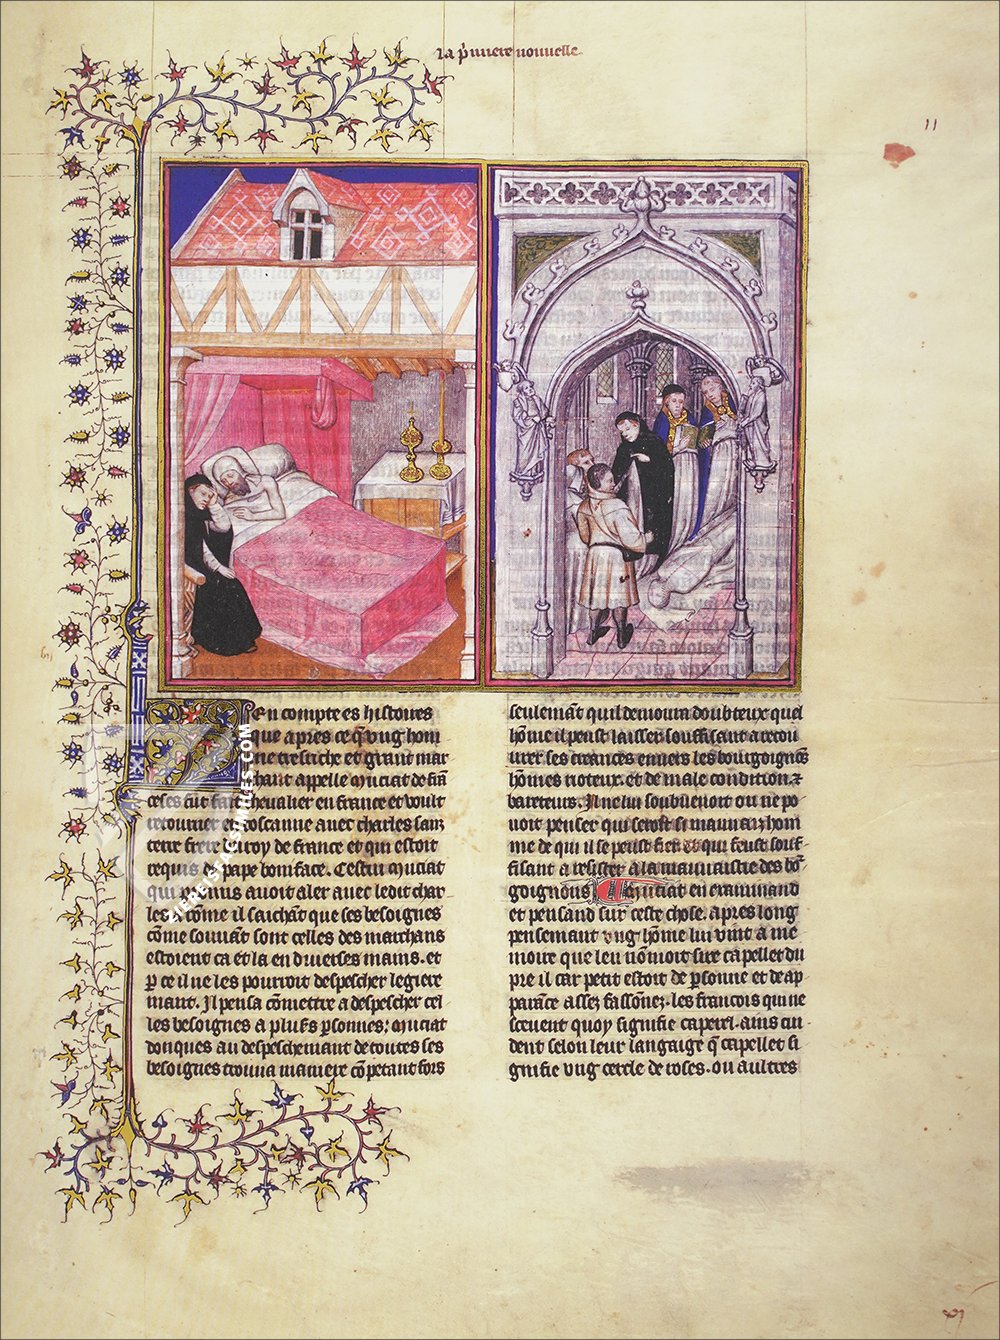 La p̄miere nouuelle
11
En compte es histoires
que apres ce q̄ vng hom
me tresriche et grant mar
chant appelle musciat de frā
ceses fut fait cheualier en france et voult
retourner en toscanne auec charles sanz
terre frere du roy de france et qui estoit
requis de pape boniface. Cestui musciat
qui promis auoit aler auec ledit char
les / cōme il saichāt que ses besoignes
cōme souuāt sont celles des marchans
estoient ca et la en diuerses mains. et
p ce il ne les pourroit despescher legiere
mant. Il pensa cōmettre a despescher cel
les besoignes a plus̄rs p̄sonnes: Musciat
donques au despeschemant de toutes ses
besoignes trouua maniere cōpetant fors
seulemāt quil demoura doubteux quel
hōme il peust laisser souffisant a recou
urer ses creances enuers les bourgoignōs
hōmes rioteux. et de male condition. ⁊
barateurs. Il ne lui soubuenoit ou ne po
uoit penser qui seroit si mauuaiz hom
me de qui il se peust fier et qui feust souf
fisant a resister a la mauuaistie des bō
goignōns Musciat en examinand
et pensand sur ceste chose. apres long
pensemant vng hōme lui vint a me
moire que leu nōmoit sire capellet du
pre il car petit estoit de p̄sonne et de ap
parāce assez fassōnez. les francois qui ne
sceuent quoy signifie caperel. ains cui
dent selon leur langaige q̄ capellet si
gnifie vng cercle de roses. ou aultres
FACSIMILES.COM